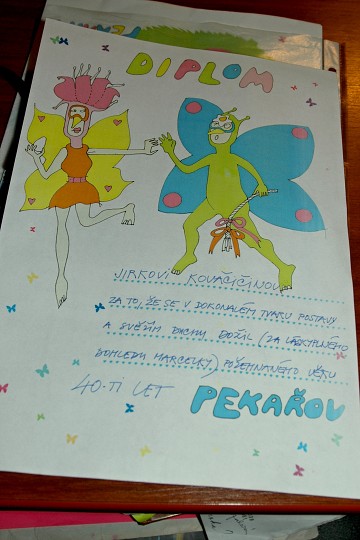 DIPLOM
JIRKOVI KOVAČIČINOVI
ZA TO, ŽE SE V DOKONALÉM TVARU POSTAVY
A SVĚŽÍM DUCHU DOŽIL (ZA LÁSKYPLNÉHO
DOHLEDU MARCELKY) POŽEHNANÉHO VĚKU
40-TI LET
PEKAŘOV